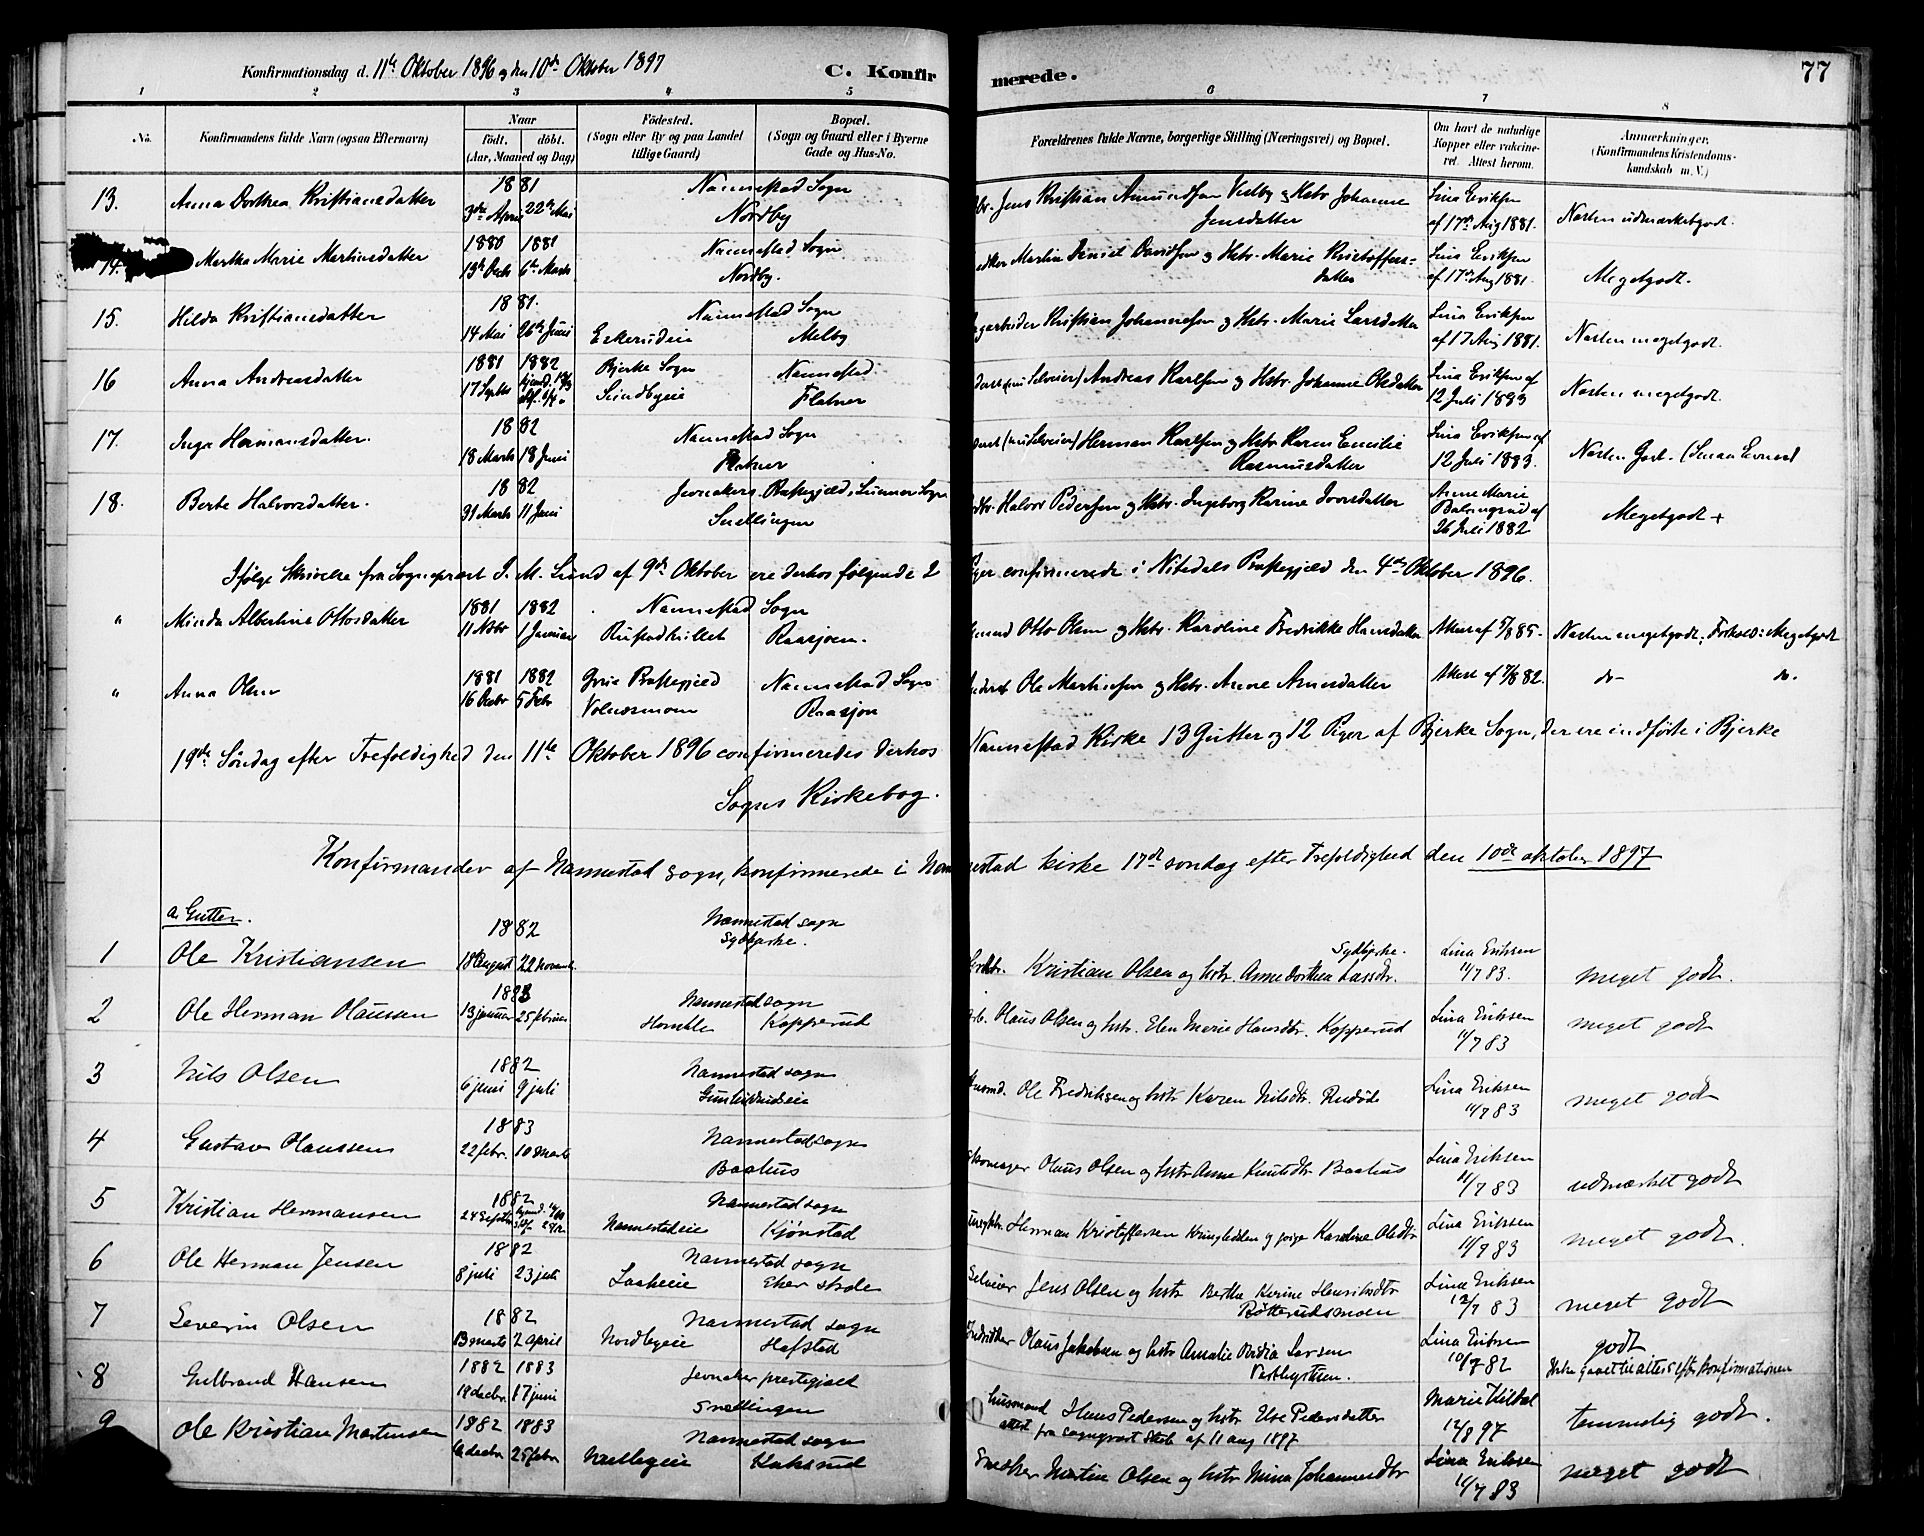 Konfirmationsdag d. 11te Oktober 1896 og den 10de Oktober 1897
C. Konfirmerede.
77
1 2 3 4 5 6 7 8
No.
Konfirmandens fulde Navn (ogsaa Efternavn)
Naar
født. døbt.
(Aar, Maaned og Dag)
Fødested.
(Sogn eller By og paa Landet
tillige Gaard)
Bopæl.
(Sogn og Gaard eller i Byerne
Gade og Hus-No.
Forældrenes fulde Navne, borgerlige Stilling (Næringsvei) og Bopæl.
Om havt de naturlige
Kopper eller vakcine-
ret. Attest herom.
Anmærkninger.
(Konfirmandens Kristendoms-
kundskab m. V.)
13. Anna Dorthea Kristiansdatter 1881 3die April 22de Mai Nannestad Sogn Nordby
Jens Kristian Amundsen Vestby og Hstr. Johanne Jensdatter
Lina Eriksen af 17de Aug 1881. Næsten udmærketgodt.
14. Martha Marie Martinsdatter 1880 19de Decb 1881 6te Marts Nannestad Sogn Nordby.
Martin Daniel Davidsen og Hstr. Marie Kristoffersdatter
Lina Eriksen af 17de Aug 1881. Megetgodt.
15. Hilda Kristiansdatter 1881. 14 Mai 26de Juni Nannestad Sogn Eskerudeie Melby
Kristian Johannesen og Hstr. Marie Larsdatter
Lina Eriksen af 17 Aug 1881. Næsten megetgodt.
16 Anna Andreasdatter 1881 17 Septbr 1882 Bjerke Sogn Sundbyeie Nannestad Flatner
Andreas Karlsen og Hstr. Johanne Olsdatter
Lina Eriksen af 12 Juli 1883 Næsten megetgodt.
17. Inga Hermansdatter. 1882 18 Marts 18 Juni Nannestad Sogn Flatner
Herman Karlsen og Hstr. Karen Emilie Rasmusdatter
Lina Eriksen af 12 Juli 1883. Næsten Godt. (Smaa Evner)
18. Berte Halvorsdatter. 1882 31 Marts 11 Juni Jevnakers Præstegjæld, Lunner Sogn Snellingen
Halvor Pedersen og Hstr. Ingeborg Karine Iversdatter
Anne Marie af 26 Juli 1882 Megetgodt +
Ifølge Skrivelse fra Sognepræst I. M. Lund af 9de Oktober ere derhos følgende 2 Piger confirmerede i Nitedals Præstegjæld den 4de Oktober 1896.
" Minda Albertine Ottosdatter 1881 11 Novbr 1882 1 Januar Nannestad Sogn Rustadhullet Raasjøen.
Otto Olsen og Hstr. Karoline Fredrikke Hansdatter Attest af 5/8 85. Næsten megetgodt; Forhold: Megetgodt
" Anna Olsen 1881 16 Octbr 1882 5 Febr Grue Præstegjæld Nannestad Sogn Raasjøen
Ole Martinsen og Hstr. Anne Arnesdatter Attest af 7/8 82. do- do.
19de Søndag efter Trefoldighed den 11te Oktober 1896 confirmeredes derhos i Nannestad Kirke 13 Gutter og 12 Piger af Bjerke Sogn, der ere indførte i Bjerke
Sogns Kirkebog.
Konfirmander af Nannestad sogn, konfirmerede i Nannestad kirke 17de søndag efter Trefoldighed den 10de oktober 1897
a. Gutter.
1 Ole Kristiansen 1882 18 august 22 novemb. Nannestad sogn Sydbjerke.
Kristian Olsen og hstr. Anne Dorthea Larsdtr. Sydbjerke. Lina Eriksen 11/7 83. meget godt.
2 Ole Herman Olaussen 1883 13 januar 25 februar Nannestad sogn Homble Kopperud
Olaus Olsen og hstr. Elen Marie Hansdtr. Kopperud Lina Eriksen 11/7 83 meget godt
3 Nils Olsen 1882 6 juni 9 juli Nannestad sogn
Husmd. Ole Fredriksen og hstr Karen Nilsdtr. Lina Eriksen 11/7 83 meget godt
4 Gustav Olaussen 1883 22 febr. 10 marts Nannestad sogn Baahus
skomager Olaus Olsen og hstr Anne Knutsdtr Baahus Lina Eriksen 11/7 83 udmærket godt
5 Kristian Hermansen 1882 24 Septbr Nannestad sogn Nannestadeie Kjønstad
Herman Kristoffersen Kringledden og pige Karoline Olsdtr Lina Eriksen 11/7 83 meget godt.
6 Ole Herman Jensen 1882 8 juli 23 juli Nannestad sogn Laakeeie Eker
Selveier Jens Olsen og hstr Berthe Karine Henriksdtr Røtterudsmoen Lina Eriksen 12/7 83 meget godt
7 Severin Olsen 1882 13 marts 2 april Nannestad sogn Nordbyeie Hafstad
Olaus Jakobsen og hstr Amalie Larsen Lina Eriksen 10/7 82 godt
Ikke gaaet til alters efter konfirmationen
8 Gulbrand Hansen 1882 18 decbr. 1883 17 juni Jevnaker prestegjæld Snellingen
husmand Hans Pedersen og hstr. Else Pedersdatter
attest fra sogneprest af 11 aug 1897 Marie 12/8 97 temmelig godt.
9 Ole Kristian Martinsen 1882 decbr 1883 25 febr. Nannestad sogn Kaksrud
Snedker Martin Olsen og hstr Mina Johannesdtr Lina Eriksen 11/7 83 meget godt